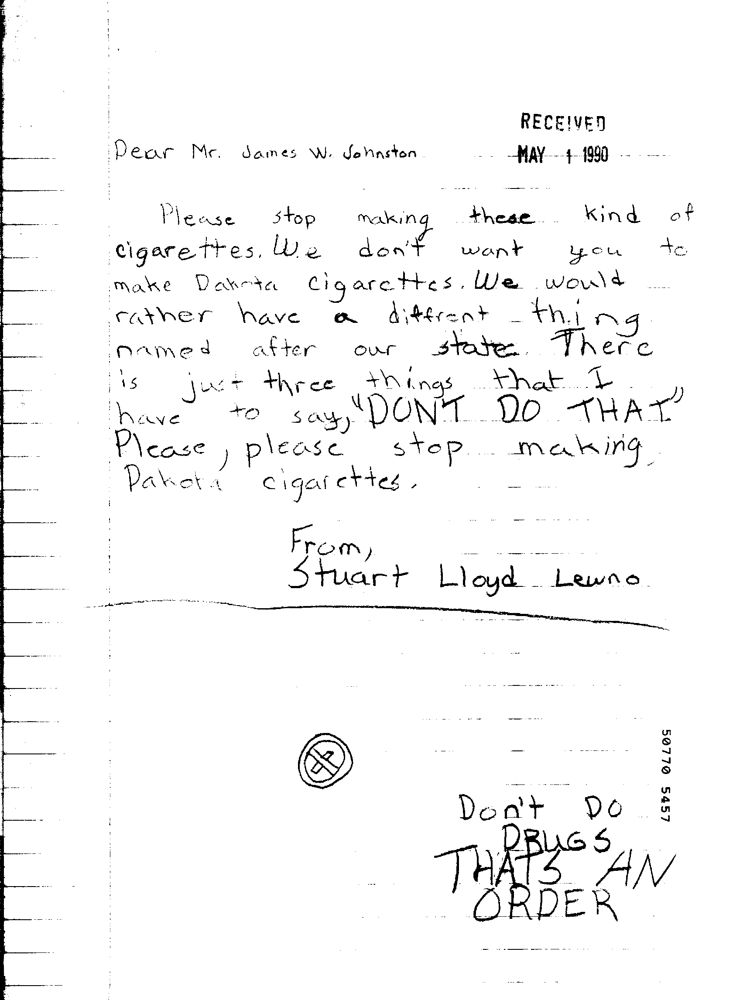 RECEIVED
MAY 1 1990
Dear Mr. James W. Johnston
Please stop making these kind of
cigarettes. We don't want you to
make Dakota cigarettes. We would
rather have a diffrent thing
named after our state. There
is just three things that I
have to say, "DONT DO THAT"
Please, please stop making
Dakota cigarettes.
From,
Stuart Lloyd Lewno
50770 5457
Don't DO
DRUGS
THATS AN
ORDER